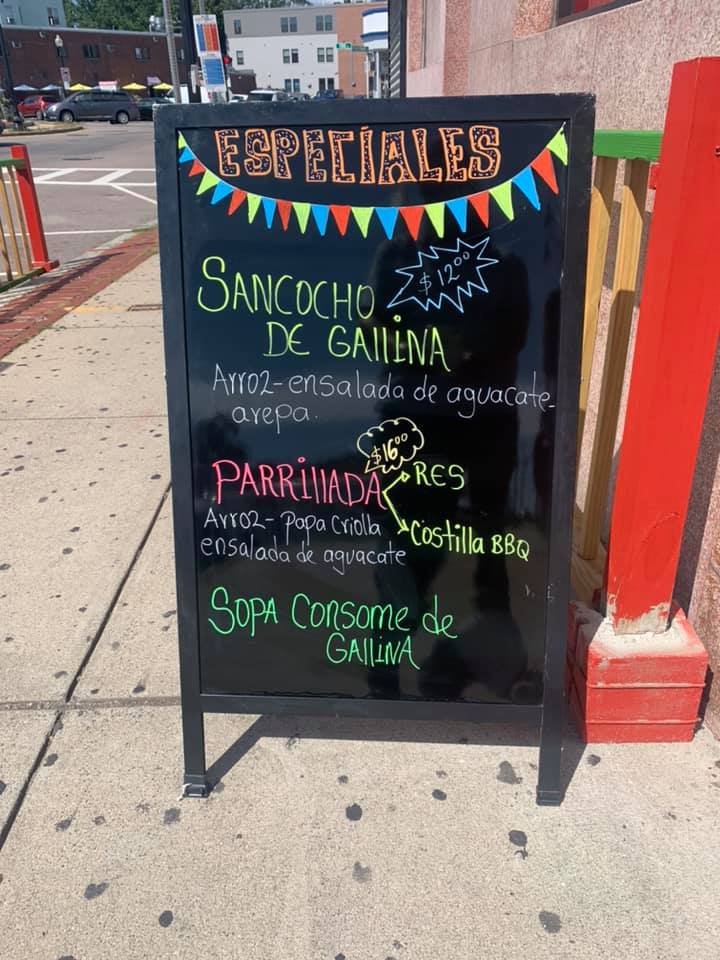 ESPECÍALES
SANCOCHO
$12.00
DE GAllINA
Arroz-ensalada de aguacate-
arepa.
$16.00
PARRIllADA
RES
Arroz- Papa Criolla
Costilla BBQ
ensalada de aguacate
SOPA Consome de
GAllINA